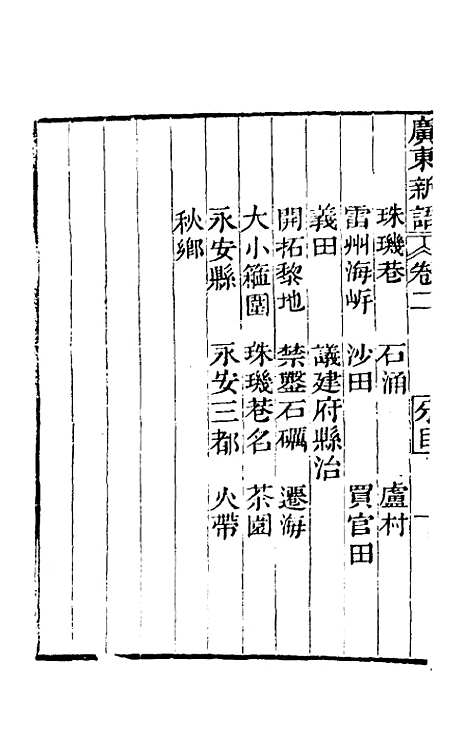 廣東新語 卷二 分目 一
珠璣巷 石涌 盧村
雷州海岓 沙田 買官田
義田 議建府縣治
開拓黎地 禁鑿石礪 遷海
大小箍圍 珠璣巷名 茶園
永安縣 永安三都 火帶
秋鄉